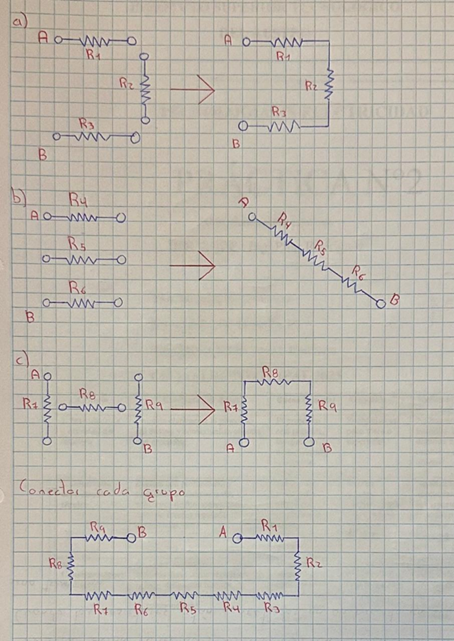 a)
A R1 R2 R3 B
A R1 R2 R3 B
b)
A R4
R5
R6 B
A R4 R5 R6 B
c)
A R7 R8 R9 B
R8
R7 R9
A B
Conectar cada grupo
R9 B A R1
R8 R2
R7 R6 R5 R4 R3